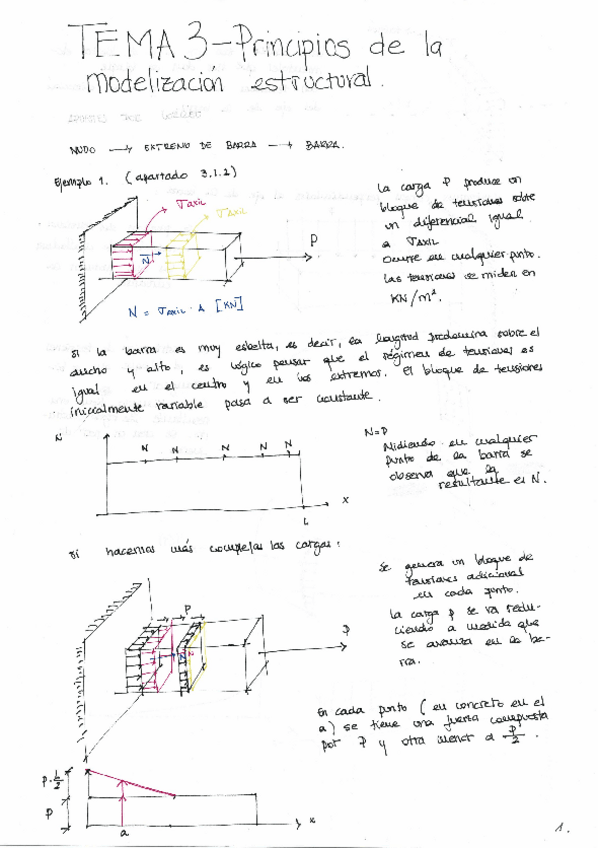 TEMA 3 - Principios de la
modelización estructural.
NUDO → EXTREMO DE BARRA → BARRA.
Ejemplo 1. (apartado 3.1.2)
σaxil
σaxil
N
P
N = σaxil · A [KN]
la carga P produce un
bloque de tensiones sobre
un diferencial igual
a σaxil
Ocurre en cualquier punto.
Las tensiones se miden en
KN/m².
Si la barra es muy esbelta, es decir, la longitud predomina sobre el
ancho y alto, es lógico pensar que el régimen de tensiones es
igual en el centro y en los extremos. El bloque de tensiones
inicialmente variable pasa a ser constante.
N
N N N N N
x
L
N=P
Midiendo en cualquier
punto de la barra se
observa que la
resultante es N.
Si hacemos más complejas las cargas:
Se genera un bloque de
tensiones adicional
en cada punto.
la carga p se va redu-
ciendo a medida que
se avanza en la ba-
rra.
P
P
En cada punto (en concreto en el
a) se tiene una fuerza compuesta
por P y otra menor a P/2.
P·L/2
P
a
x
1.